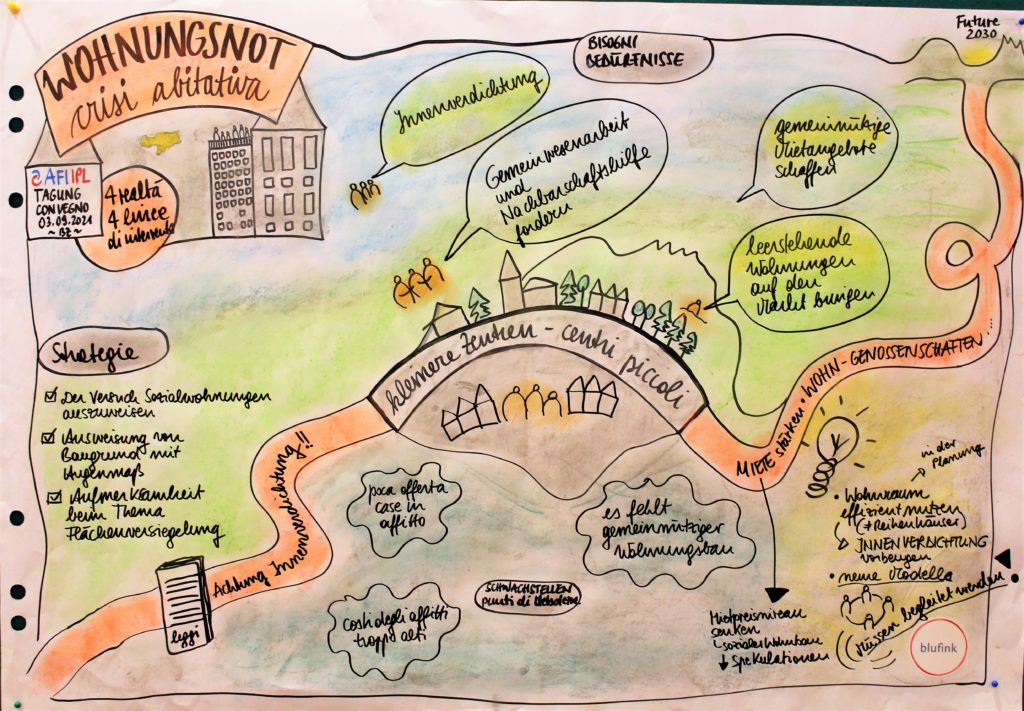 WOHNUNGSNOT
crisi abitativa
AFI IPL
TAGUNG
CONVEGNO
03.09.2021
~ BZ ~
4 realtà
4 linee
di intervento
BISOGNI
BEDÜRFNISSE
Future
2030
Innenverdichtung
Gemeinwesenarbeit
und
Nachbarschaftshilfe
fördern
gemeinnützige
Mietangebote
schaffen
leerstehende
Wohnungen
auf den
Markt bringen
kleinere Zentren - centri piccoli
Strategie
Der Versuch Sozialwohnungen
auszuweisen
Ausweisung von
Baugrund mit
Augenmaß
Aufmerksamkeit
beim Thema
Flächenversiegelung
leggi
Achtung Innenverdichtung!!
poca offerta
case in
affitto
es fehlt
gemeinnütziger
Wohnungsbau
SCHWACHSTELLEN
punti di debolezza
costi degli affitti
troppo alti
MIETE stärken · WOHN-GENOSSENSCHAFTEN...
Mietpreisniveau
senken
sozialer Wohnbau
↓ Spekulationen
in der
Planung
• Wohnraum
effizient nutzen
(≠ Reihenhäuser)
INNENVERDICHTUNG
vorbeugen
• neue Modelle
müssen begleitet werden
blufink